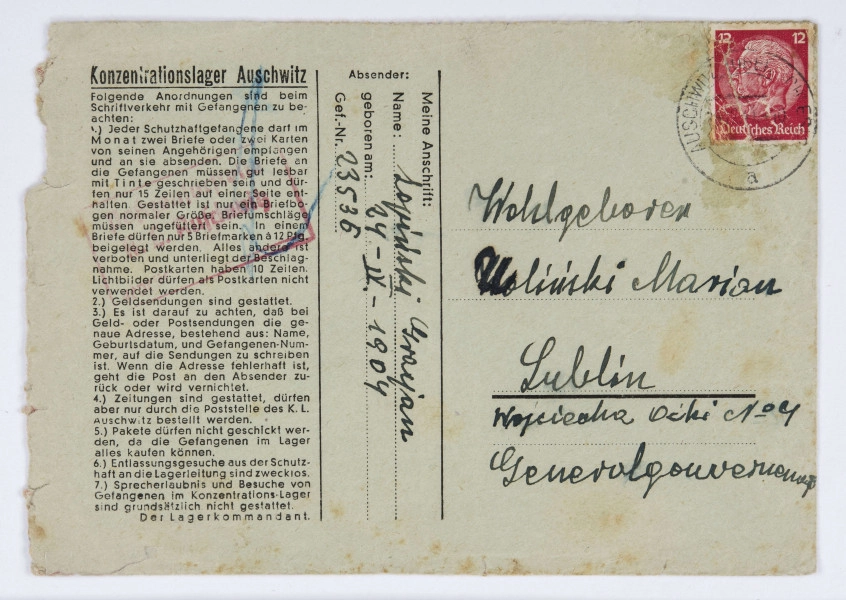 Konzentrationslager Auschwitz
Folgende Anordnungen sind beim
Schriftverkehr mit Gefangenen zu be-
achten:
1.) Jeder Schutzhaftgefangene darf im
Monat zwei Briefe oder zwei Karten
von seinen Angehörigen empfangen
und an sie absenden. Die Briefe an
die Gefangenen müssen gut lesbar
mit Tinte geschrieben sein und dür-
fen nur 15 Zeilen auf einer Seite ent-
halten. Gestattet ist nur ein Briefbo-
gen normaler Größe. Briefumschläge
müssen ungefüttert sein. In einem
Briefe dürfen nur 5 Briefmarken à 12 Pfg.
beigelegt werden. Alles andere ist
verboten und unterliegt der Beschlag-
nahme. Postkarten haben 10 Zeilen.
Lichtbilder dürfen als Postkarten nicht
verwendet werden.
2.) Geldsendungen sind gestattet.
3.) Es ist darauf zu achten, daß bei
Geld- oder Postsendungen die ge-
naue Adresse, bestehend aus: Name,
Geburtsdatum, und Gefangenen-Num-
mer, auf die Sendungen zu schreiben
ist. Wenn die Adresse fehlerhaft ist,
geht die Post an den Absender zu-
rück oder wird vernichtet.
4.) Zeitungen sind gestattet, dürfen
aber nur durch die Poststelle des K. L.
Auschwitz bestellt werden.
5.) Pakete dürfen nicht geschickt wer-
den, da die Gefangenen im Lager
alles kaufen können.
6.) Entlassungsgesuche aus der Schutz-
haft an die Lagerleitung sind zwecklos.
7.) Sprecherlaubnis und Besuche von
Gefangenen im Konzentrations-Lager
sind grundsätzlich nicht gestattet.
Der Lagerkommandant.
Absender:
Meine Anschrift:
Name: Łopiński
geboren am: 24-IV-1904
Gef.-Nr. 23536
12 12
Deutsches Reich
AUSCHWITZ
a
Wohlgeboren
Woliński Marian
Lublin
Wojciecha No 4
Generalgouvernement